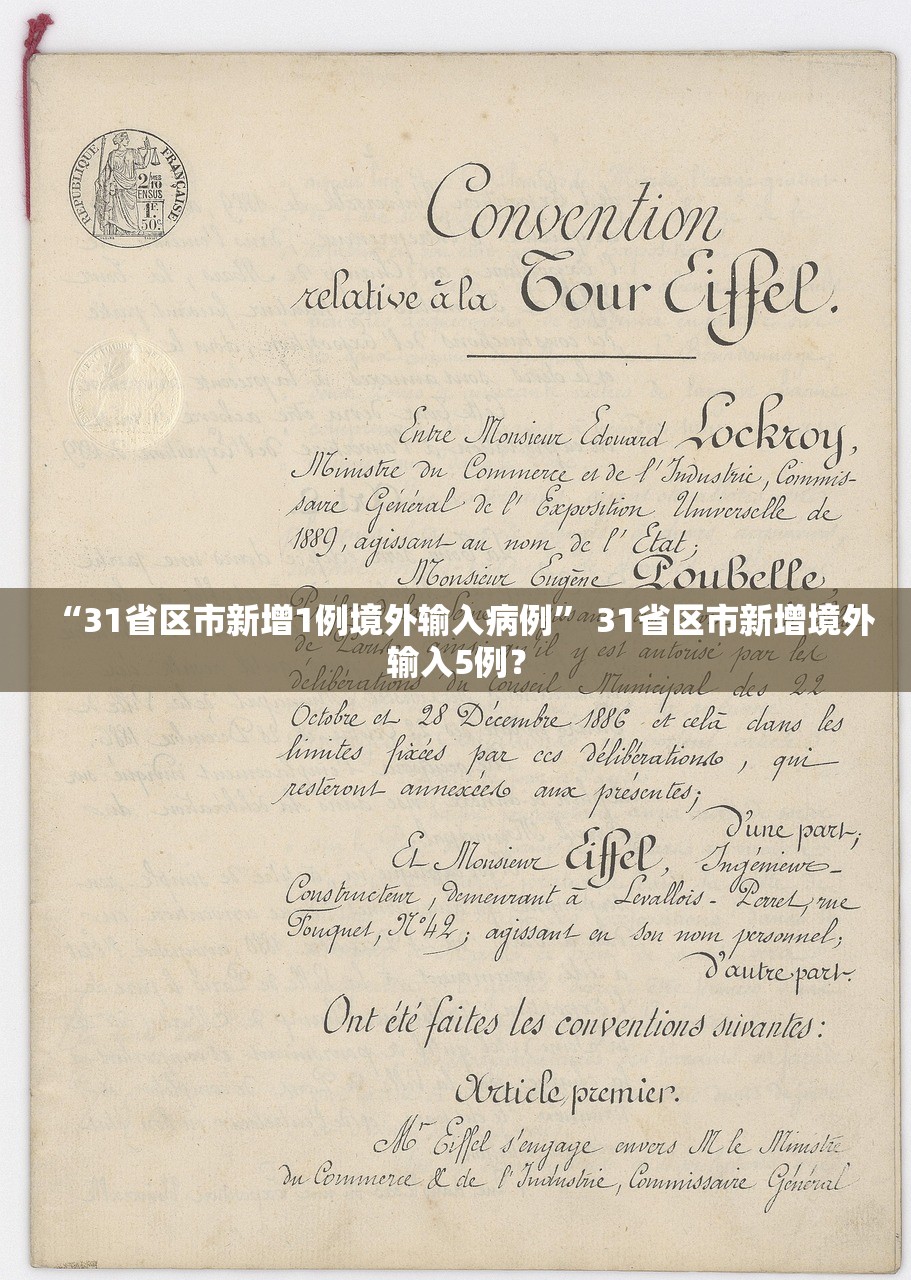 RÉPUBLIQUE FRANÇAISE
2/10
EN SUS
1F.
50c
Convention
relative à la Tour Eiffel.
Entre Monsieur Edouard Lockroy,
Ministre du Commerce et de l'Industrie, Commis-
saire Général de l'Exposition Universelle de
1889, agissant au nom de l'Etat;
Monsieur Eugène Poubelle,
“31省区市新增1例境外输入病例” 31省区市新增境外
输入5例？
de Paris, ainsi qu'il y est autorisé par les
délibérations du Conseil Municipal des 22
Octobre et 28 Décembre 1886 et celà dans les
limites fixées par ces délibérations, qui
resteront annexées aux présentes;
d'une part;
Et Monsieur Eiffel, Ingénieur-
Constructeur, demeurant à Levallois-Perret, rue
Fouquet, N°42; agissant en son nom personnel;
d'autre part.
Ont été faites les conventions suivantes:
Article premier.
Mr Eiffel s'engage envers M le Ministre
du Commerce & de l'Industrie, Commissaire Général